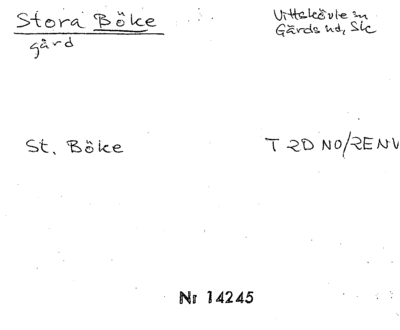 Stora Böke
gård
Vittskövle sn
Gärds hd, Sk
St. Böke
T 2D NO/2ENV
Nr 14245